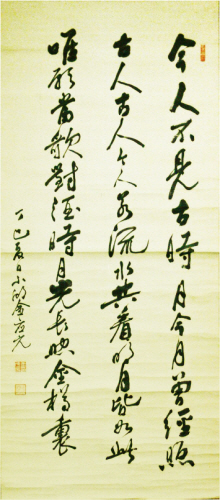 今人不見古時月今月曾經照
古人古人今人若流水共看明月皆如此
唯願當歌對酒時月光長映金樽裏
丁巳夏日小